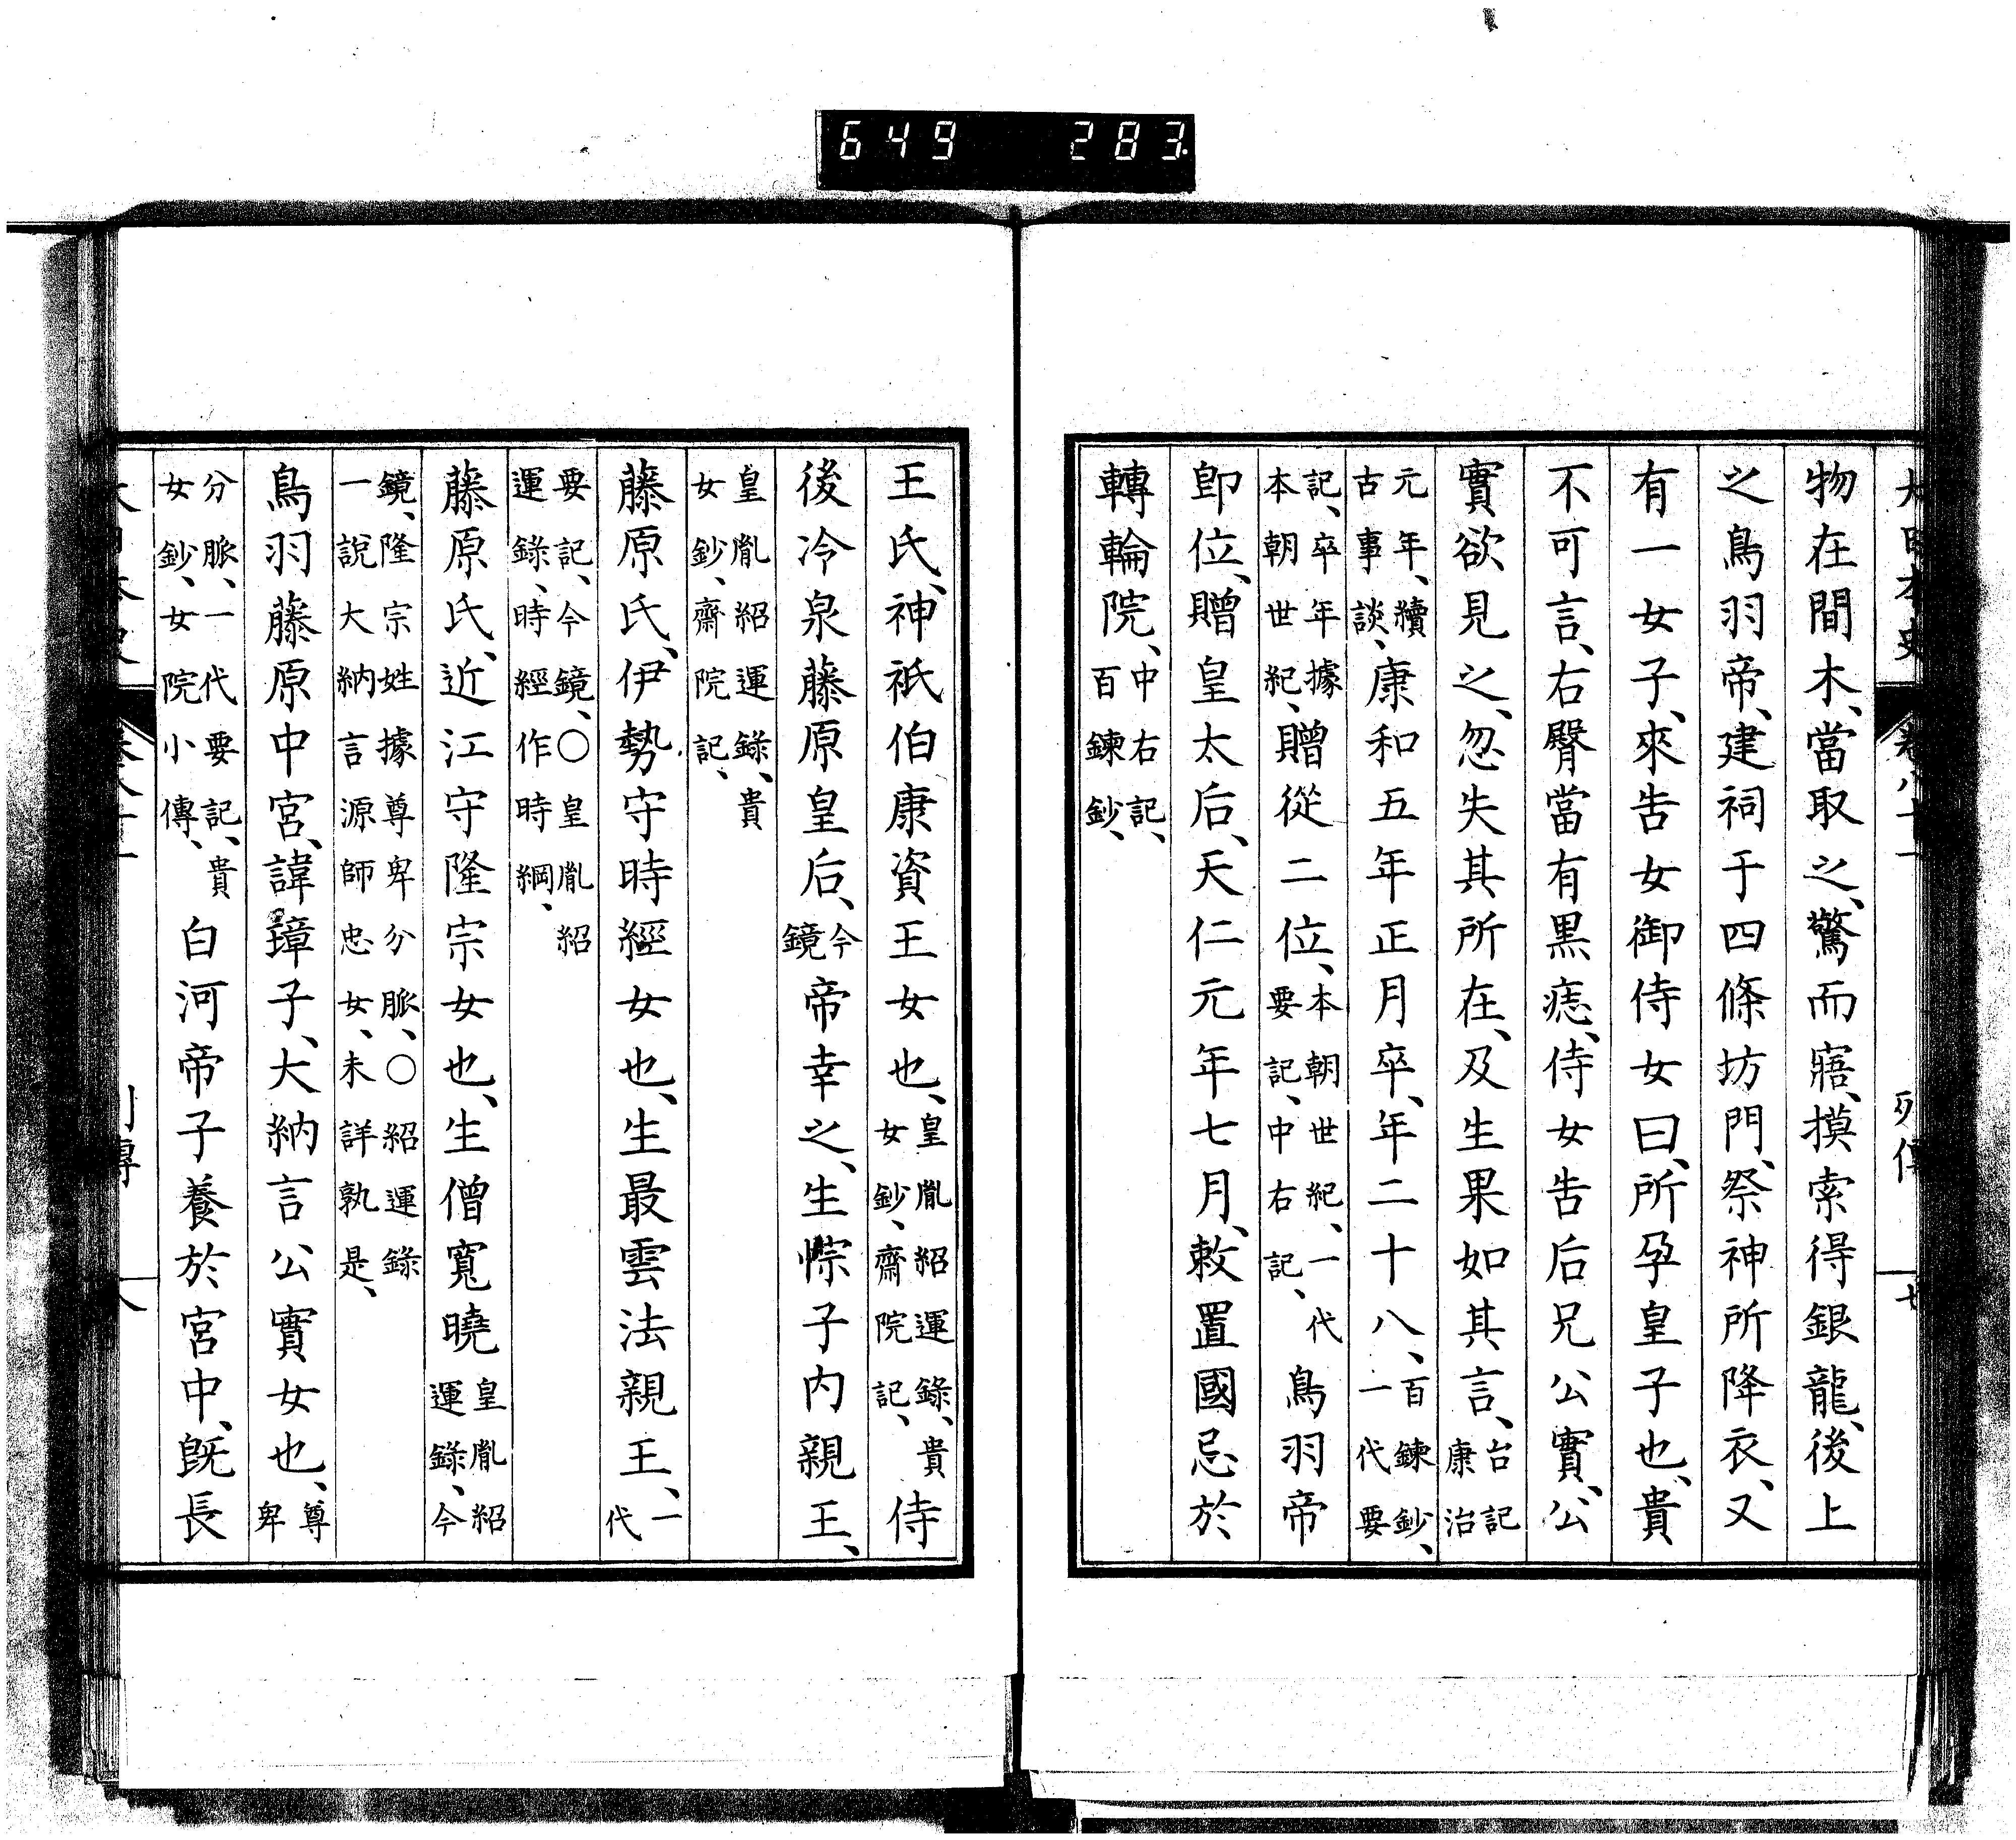 649 283
物在間木、當取之、驚而寤、摸索得銀龍、後上
之鳥羽帝、建祠于四條坊門、祭神所降衣、又
有一女子、來告女御侍女曰、所孕皇子也、貴
不可言、右臀當有黒痣、侍女告后兄公實、公
實欲見之、忽失其所在、及生果如其言、台記康治
元年、續古事談、康和五年正月卒、年二十八、百鍊鈔、一代要
記、卒年據本朝世紀、贈從二位、本朝世紀、一代要記、中右記、鳥羽帝
卽位、贈皇太后、天仁元年七月、敕置國忌於
轉輪院、中右記、百鍊鈔、
王氏、神祇伯康資王女也、皇胤紹運錄、貴女鈔、齋院記、侍
後冷泉藤原皇后、今鏡帝幸之、生悰子內親王、
皇胤紹運錄、貴女鈔、齋院記、
藤原氏、伊勢守時經女也、生最雲法親王、一代
要記、今鏡、○皇胤紹運錄、時經作時綱、
藤原氏、近江守隆宗女也、生僧寬曉皇胤紹運錄、今
鏡、隆宗姓據尊卑分脈、○紹運錄一說大納言源師忠女、未詳孰是、
鳥羽藤原中宮、諱璋子、大納言公實女也、尊卑
分脈、一代要記、貴女鈔、女院小傳、白河帝子養於宮中、旣長